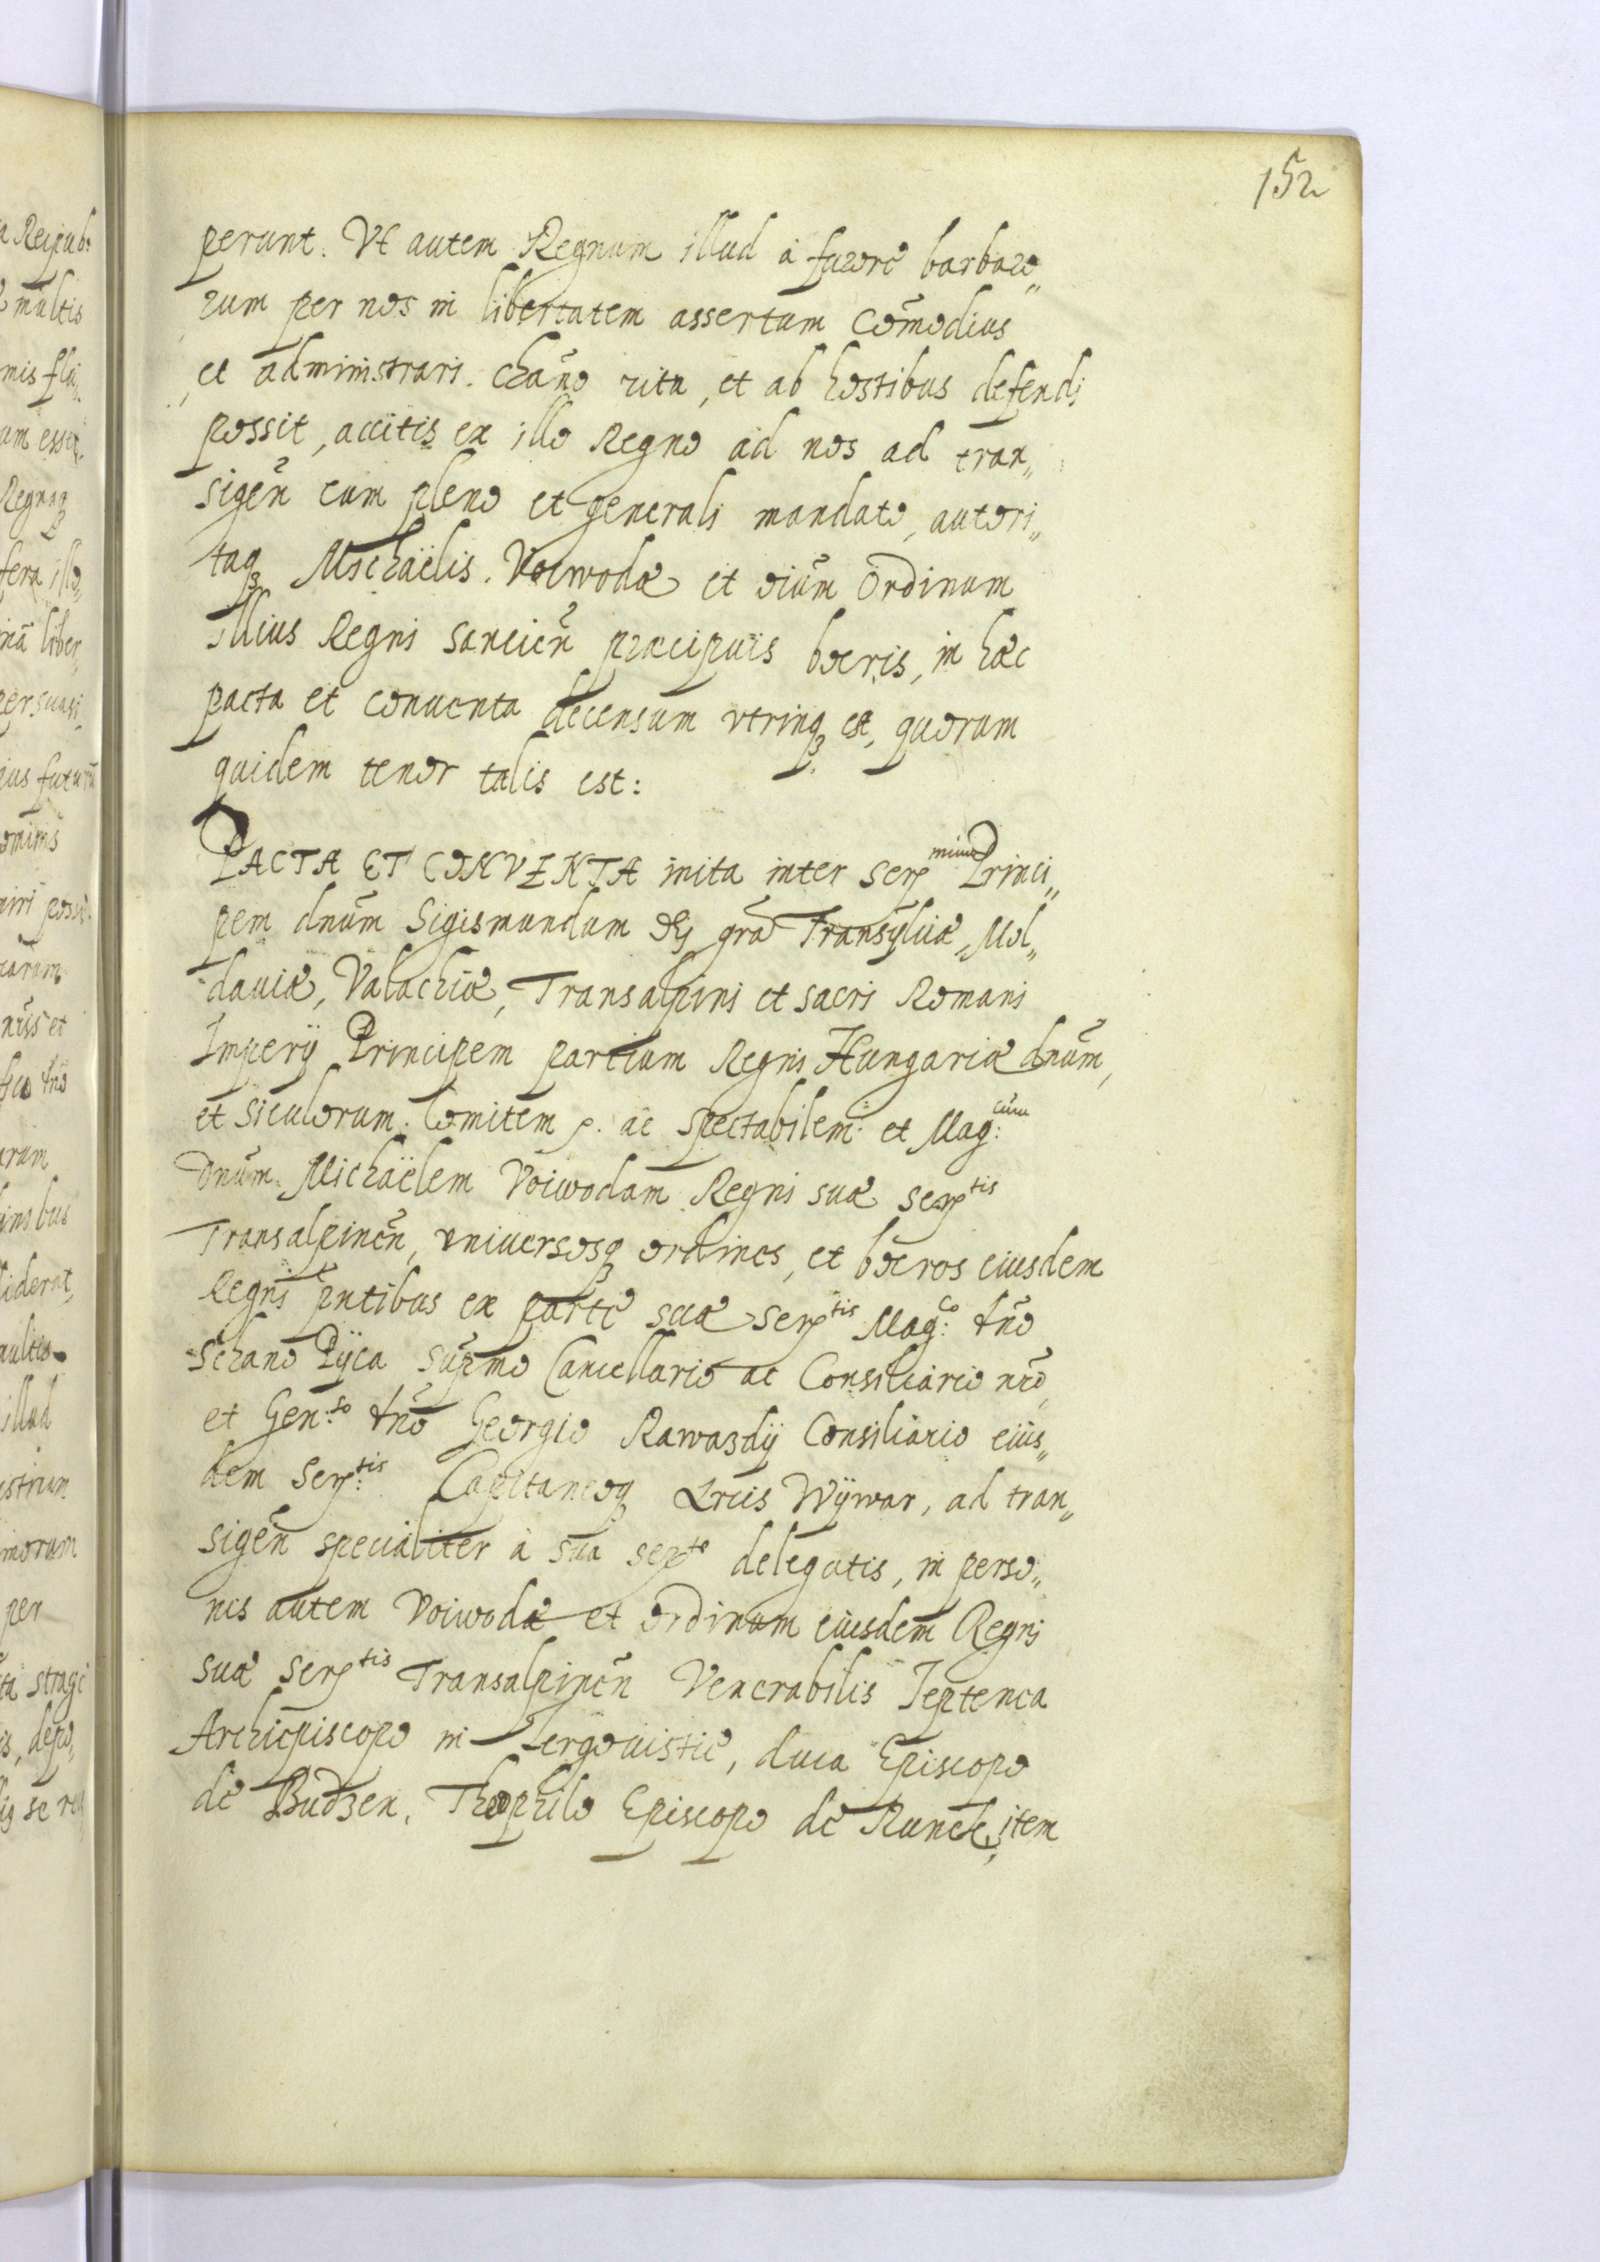 152
perunt. Vt autem Regnum illud à furore barbaro„
rum per nos in libertatem assertum Com̃odius
et administrari. Chr̃ano ritu, et ab hostibus defendi
possit, accitis ex illo Regno ad nos ad tran„
sigeñ cum pleno et generali mandato, autori„
taq₃ Michaëlis. Voiwodæ et oiũm Ordinum
illius Regni sancieñ præcipuis boeris, in hæc
pacta et conventa decensum vtrinq₃ est, quorum
quidem tenor talis est:
PACTA ET CONVENTA inita inter Ser^mum Princi„
pem dnũm Sigismundum Dei gra͂ Transyluiæ, Mol„
dauiæ, Valachiæ, Transalpini et sacri Romani
Imperÿ Principem partium Regni Hungariæ dnũm,
et Siculorum. Comitem ac Spectabilem. et Mag:^cum
Dnũm. Michaëlem Voiwodam Regni suæ Ser^tis
Transalpineñ, vniuersosq₃ ordines, et boeros eiusdem
Regni pñtibus ex parte suæ Ser^tis Mag:^co dñо
Stephano Supremo Cancellario ac Consiliario nrõ,
et Gen:^so dñо Georgio Rawazdÿ Consiliario eius„
dem Ser:^tis Capitaneoq₃ Arcis Wÿwar, ad tran„
sigeñ specialiter à sua Ser^te delegatis, in perso„
nis autem Voiwodæ et ordinum eiusdem Regni
suæ Ser^tis Transalpineñ Venerabilis
Archiepiscopo in Tergouistie, Luca Episcopo
de Budzen, Theophilo Episcopo de item